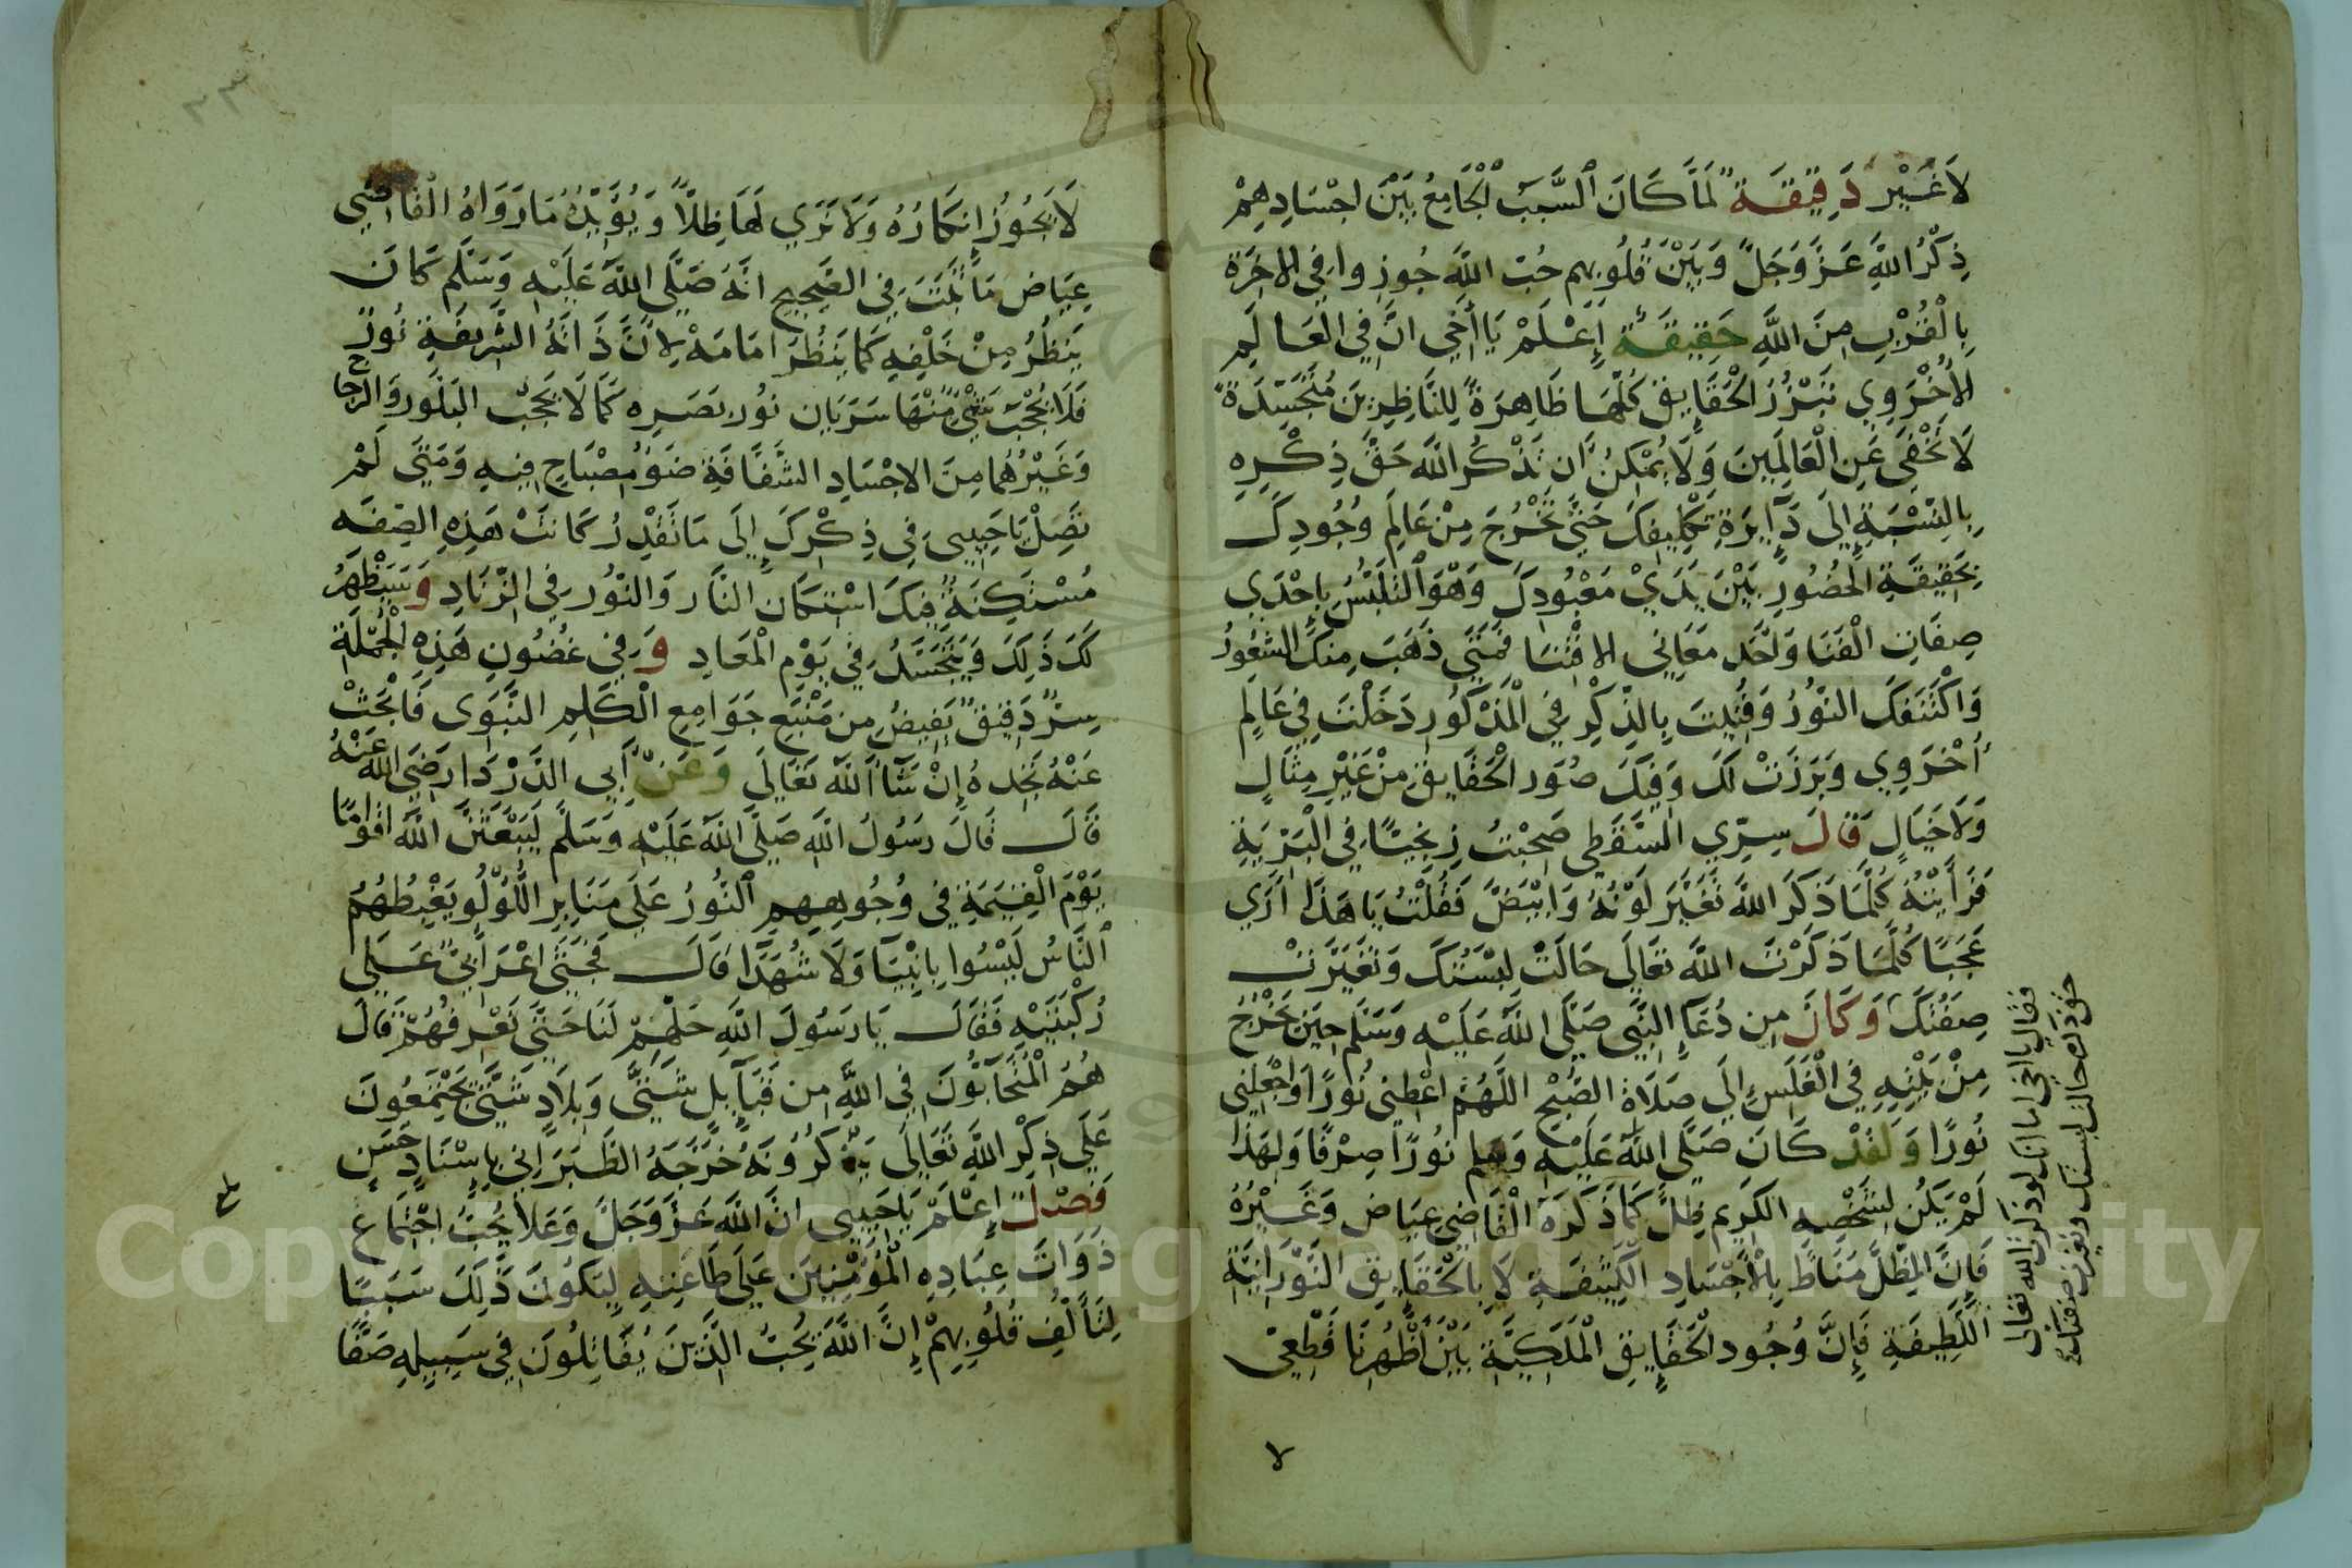 لَا غَيْر دَقِيقَة لَمَّا كَانَ السَّبَبُ الْجَامِعُ بَيْنَ اجْسَادِهِمْ
ذِكْرُ اللَّهِ عَزَّ وَجَلَّ وَبَيْنَ قُلُوبِهِم حُبّ اللَّهِ جُوزِوا فِي الاخِرَةِ
بِالْقُرْبِ مِنَ اللَّهِ حَقِيقَة إِعْلَمْ يَا أَخِي انَّ فِي الْعَالَمِ
الأُخْرَوِي تَبْرُزُ الْحَقَايِق كُلُّهَا ظَاهِرَةً لِلنَّاظِرِينَ مُتَجَسِّدَةً
لَا تَخْفَى عَنِ الْعَالَمِينَ وَلَا يُمْكِنُ أَن تَذْكُرَ اللَّه حَقَّ ذِكْرِهِ
بِالنِّسْبَةِ إِلَى دَآيِرَةِ تَكْلِيفِكَ حَتَّى تَخْرُجَ مِنْ عَالَمِ وُجُودِكَ
بِحَقِيقَةِ الْحُضُورِ بَيْنَ يَدَيْ مَعْبُودِكَ وَهُوَ التَّلَبُّسُ بِإِحْدَي
صِفَاتِ الْفَنَا وَأَحَد مَعَانِي الافْنَا فَمَتَي ذَهَبَ مِنكَ الشُعُورُ
وَاكْتَنَفَكَ النُّورُ وَفَنِيتَ بِالذِّكْرِ فِي الْمَذْكُورِ دَخَلْتَ فِي عَالَمٍ
أُخْرَوِي وَبَرَزَتْ لَكَ وَفِيكَ صُوَر الْحَقَايِقِ مِنْ غَيْرِ مِثَالٍ
وَلَا خَيَالٍ قَالَ سِرِّي السَّقَطِي صَحِبْتُ زِنْجِيًّا فِي الْبَرِّيَةِ
فَرَأَيْتُهُ كُلَّمَا ذَكَرَ اللَّهَ تَغَيَّرَ لَوْنُهُ وَابْيَضَّ فَقُلْتُ يَا هَذَا أَرَي
عَجَبًا كُلَّمَا ذَكَرْتَ اللَّه تَعَالَي حَالَتْ لِبْسَتُكَ وَتَغَيَّرَتْ
صِفَتُكَ وَكَانَ مِن دُعَآءِ النَّبِي صَلَّى اللَّهُ عَلَيْهِ وَسَلَّم حِينَ يَخْرُجُ
مِنْ بَيْتِهِ فِي الْغَلَسِ إِلَي صَلَاةِ الصُّبْحِ اللَّهُمَّ اعْطِنِي نُورًا وَاجْعَلْنِي
نُورًا وَلَقَدْ كَانَ صَلَّى اللَّهُ عَلَيْهِ وَسلم نُورًا صِرْفًا وَلِهَذَا
لَمْ يَكُن لِشَخْصِهِ الكَرِيم ظِلٌّ كَمَا ذَكَرَهُ الْقَاضِي عِيَاض وَغَيْرُهُ
فَإِنَّ الظِّلَّ مَنَاطٌ بِالأَجْسَادِ الكَثِيفَةِ لَا بِالْحَقَايِق النُّورَانِيَّةِ
اللَّطِيفَةِ فَإِنَّ وُجُودِ الْحَقَايِقِ الْمَلَكِيَّةِ بَيْنَ أَظْهُرِنَا قَطْعِيّ
فقال يا اخي اما انك لو ذكرت الله تعالى
حق ذكره حالت لبستك وتغيرت صفتك
لَا يَجُوزُ إِنكَارُهُ وَلَا نَرَي لَهَا ظِلاًّ وَيُؤَيِّدُهُ مَا رَوَاهُ الْقَاضِي
عِيَاض مَا ثَبَتَ فِي الصَّحِيح انَّهُ صَلَّى اللَّهُ عَلَيْهِ وَسَلَّم كَانَ
يَنظُرُ مِنْ خَلْفِهِ كَمَا يَنظُرُ امَامَهُ لِأَنَّ ذَاتَهُ الشَّرِيفَةِ نُورٌ
فَلَا يُحْجَبُ شَيْ مِنْهَا سَرَيَان نُورِ بَصَرِهِ كَمَا لَا يَحْجُبُ البَلُّور وَالزجاج
وَغَيْرُهُمَا مِنَ الاجْسَادِ الشَّفَّافَةِ ضَوْءُ مِصْبَاحٍ فِيهِ وَمَتَي لَمْ
تَصِلْ يَا حَبِيبِي فِي ذِكْرِكَ إِلَى مَا تَقْدِرُ كَانَتْ هَذِهِ الصِّفَه
مُسْتَكِنَةً فِيكَ اسْتِكَان النَّار وَالنُّور فِي الزِّنَادِ وَسَيَظْهَرُ
لَكَ ذَلِكَ وَيَتَجَسَّدُ فِي يَوْم الْمَعَادِ وَ فِي غُضُونِ هَذِهِ الْجُمْلَةِ
سِرٌّ دَقِيقٌ يَفِيضُ مِن مَنْبَعِ جَوَامِعِ الْكَلِمِ النَّبَوِى فَابْحَثْ
عَنْهُ تَجِدهُ إِنْ شَآ اللَّه تَعَالَي وَعَنْ أَبِي الدَّرْدَا رَضِيَ اللَّه عَنْهُ
قَالَ قَالَ رَسُولُ اللَّهِ صَلَّى اللَّهُ عَلَيْهِ وَسَلَّم لَيَبْعَثَنَّ اللَّهُ اقوامًا
يَوْمَ الْقِيَمَةِ فِي وُجُوهِهِمِ النُّورُ عَلَى مَنَابِرِ اللُّؤْلُو يَغْبِطُهُمُ
النَّاسُ لَيْسُوا بِانْبِيَآ وَلَا شُهَدَآ قَالَ فَجَثَى اعْرَابِيٌّ عَلَي
رُكْبَتَيْهِ فَقَالَ يَا رَسُولَ اللَّهِ حَلِّهِمْ لَنَا حَتَّي نَعْرِفُهُمْ قَالَ
هُمُ الْمُتَحَابُّونَ فِي اللَّهِ مِن قَبَآيِلِ شَتَّى وَبِلَادٍ شَتَّى يَجْتَمِعُونَ
عَلَي ذِكْرِ اللَّهِ تَعَالَي يَذْكُرُونَهُ خَرَّجَهُ الطَّبَرَانِي بِإِسْنَادٍ حَسَنٍ
فَصْل إِعْلَمْ يَا حَبِيبِي انَّ اللَّهَ عَزَّ وَجَلَّ وَعَلا يُحِبُّ اجْتِمَاعَ
ذَوَاتَ عِبَادِهِ الْمُؤمِنِينَ عَلَى طَاعَتِهِ لِيَكُونَ ذَلِكَ سَبَبًا
لِتَأَلُّفِ قُلُوبِهِمْ إِنَّ اللَّهَ يُحِبُّ الَّذِينَ يُقَاتِلُونَ فِي سَبِيلِهِ صَفًّا
Copyright © King Saud University